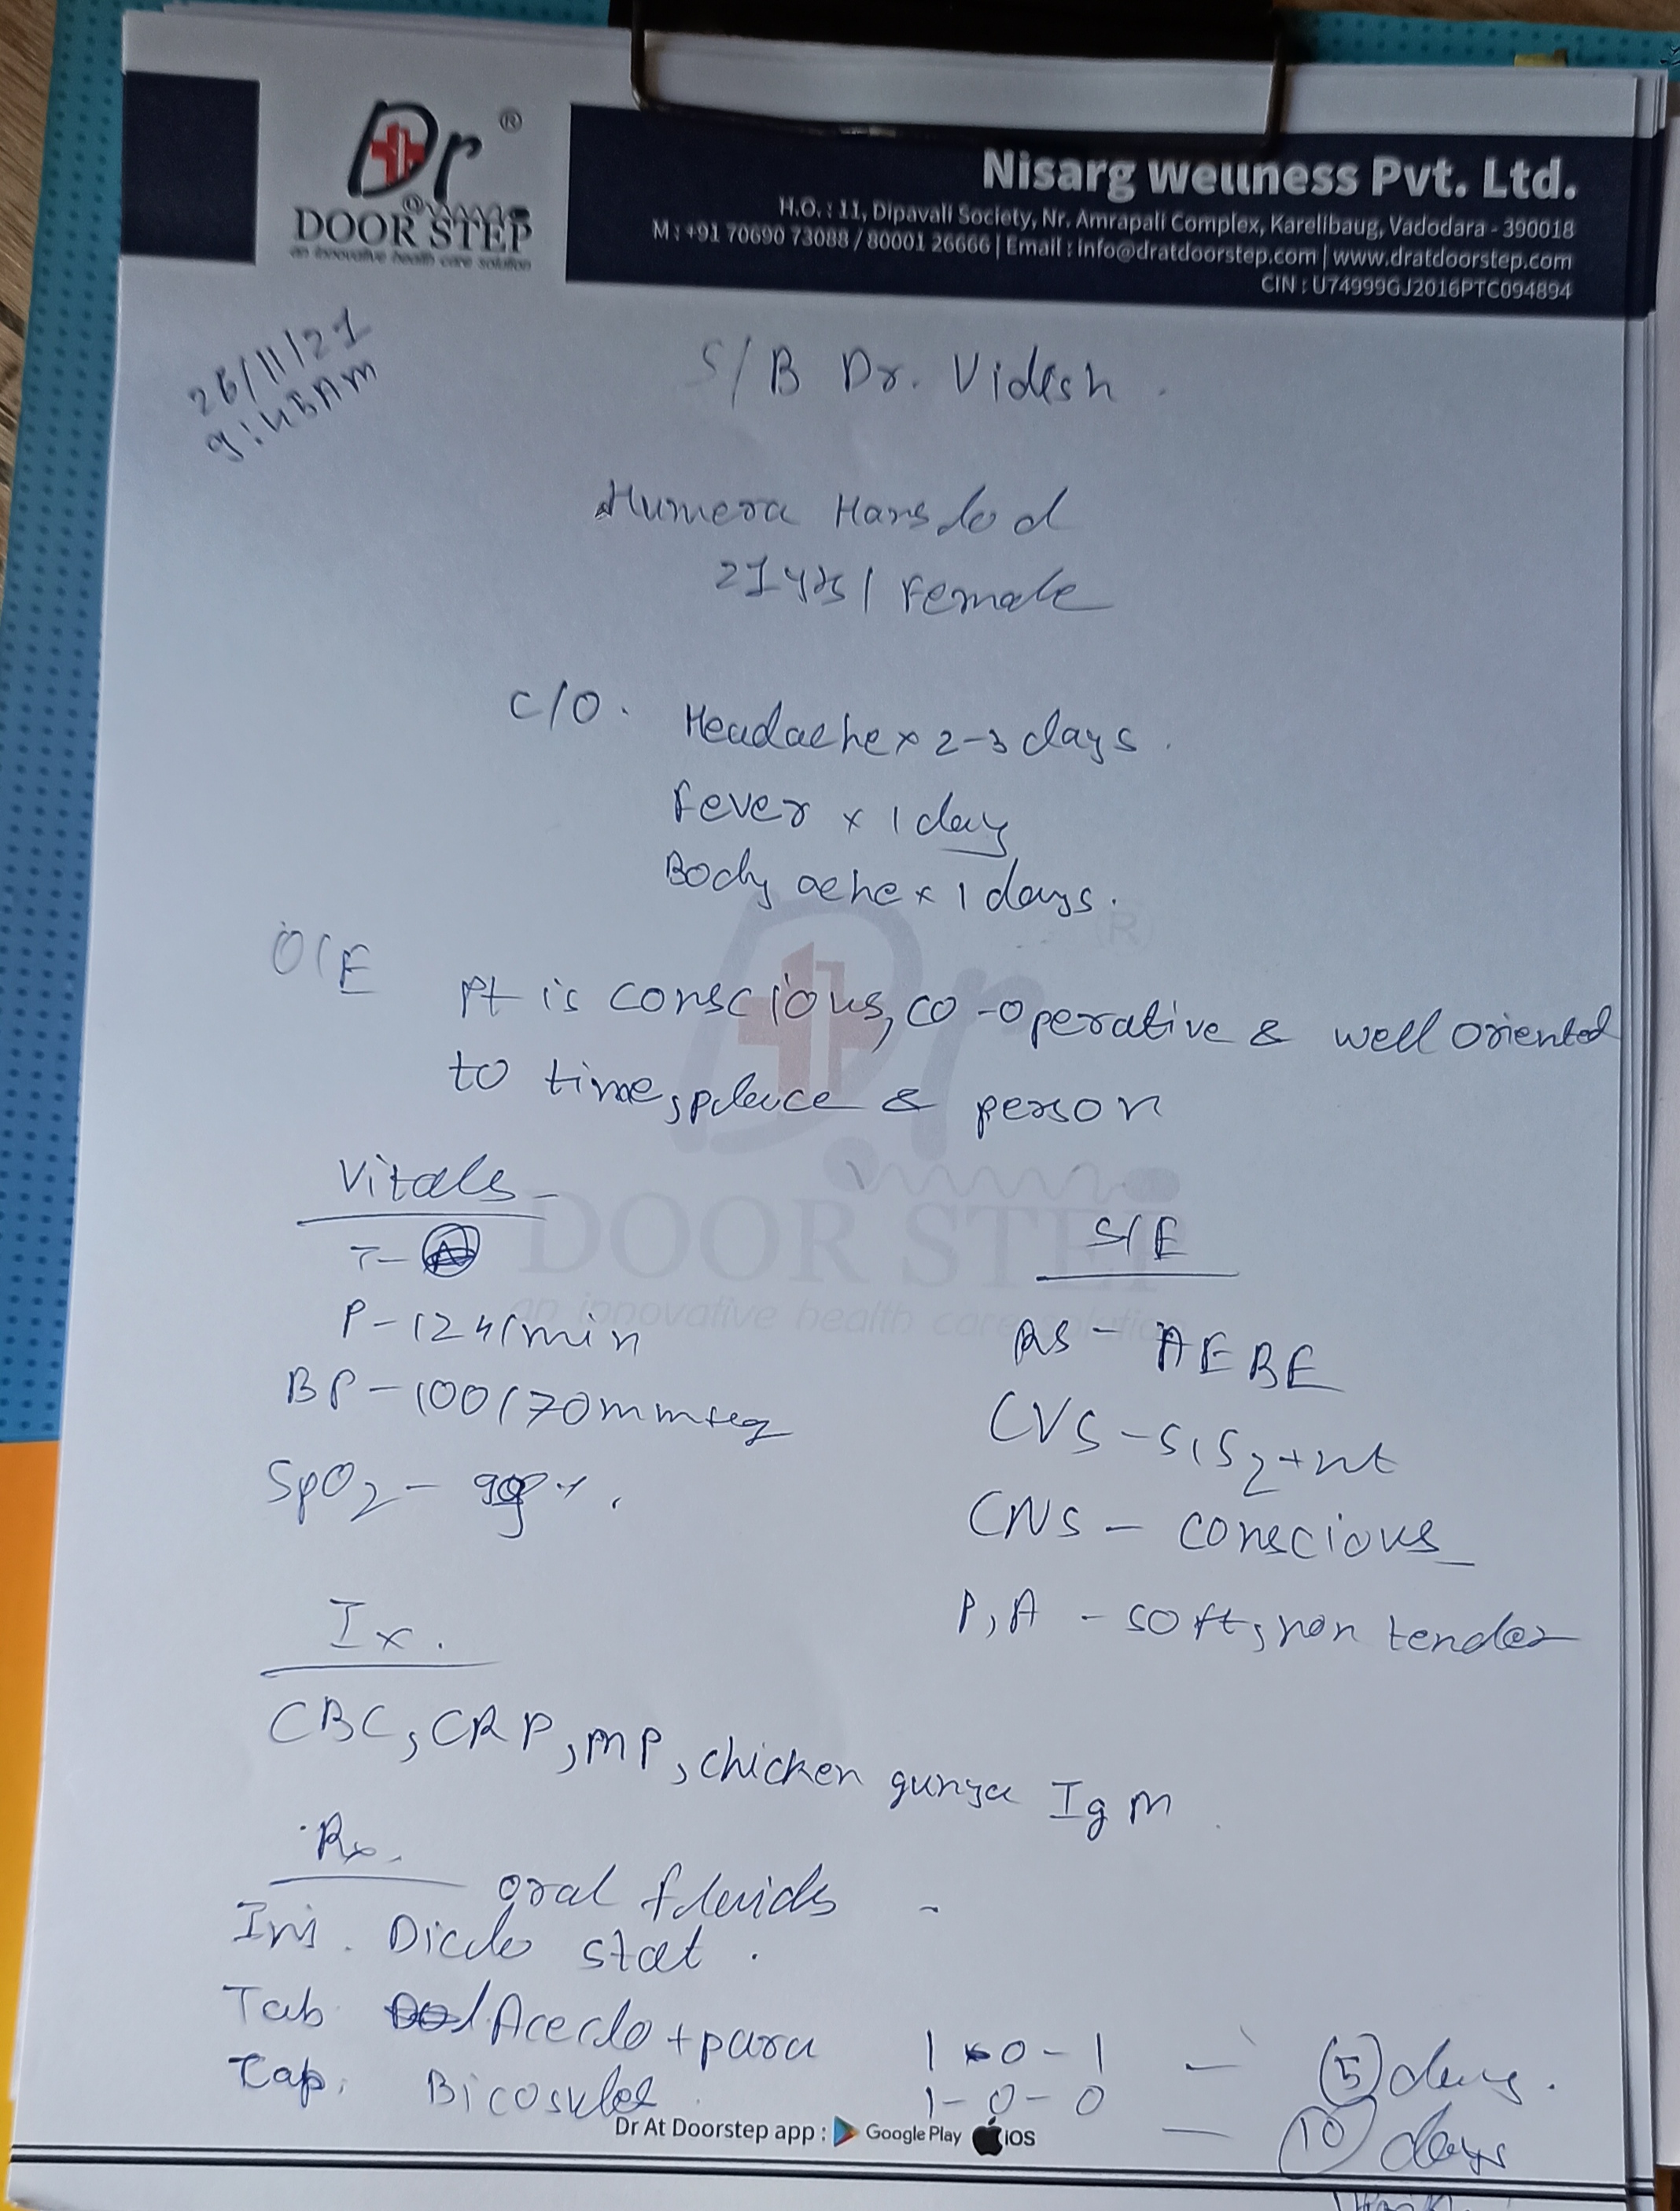 Dr ®
DOOR STEP
an innovative health care solution
Nisarg Wellness Pvt. Ltd.
H.O. : 11, Dipavali Society, Nr. Amrapali Complex, Karelibaug, Vadodara - 390018
M : +91 70690 73088 / 80001 26666 | Email : info@dratdoorstep.com | www.dratdoorstep.com
CIN : U74999GJ2016PTC094894
26/11/21
9:45AM
S/B Dr. Videsh.
Humera
21 yrs / Female
C/O. Headache x 2-3 days.
Fever x 1 day
Body ache x 1 days.
O/E
Pt is conscious, co-operative & well oriented
to time, place & person
Vitals -
T-
P - 124/min
BP - 100/70mmHg
SpO2 - 99%.
S/E
RS - AEBE
CVS - S1S2+nt
CNS - conscious
P,A - soft, non tender
Ix.
CBC, CRP, MP, chicken gunya IgM.
Rx.
oral fluids -
Inj. Diclo stat.
Tab. Aceclo + para 1-0-1 - (5) days.
Cap. 1-0-0 - (10) days
Dr At Doorstep app : Google Play iOS